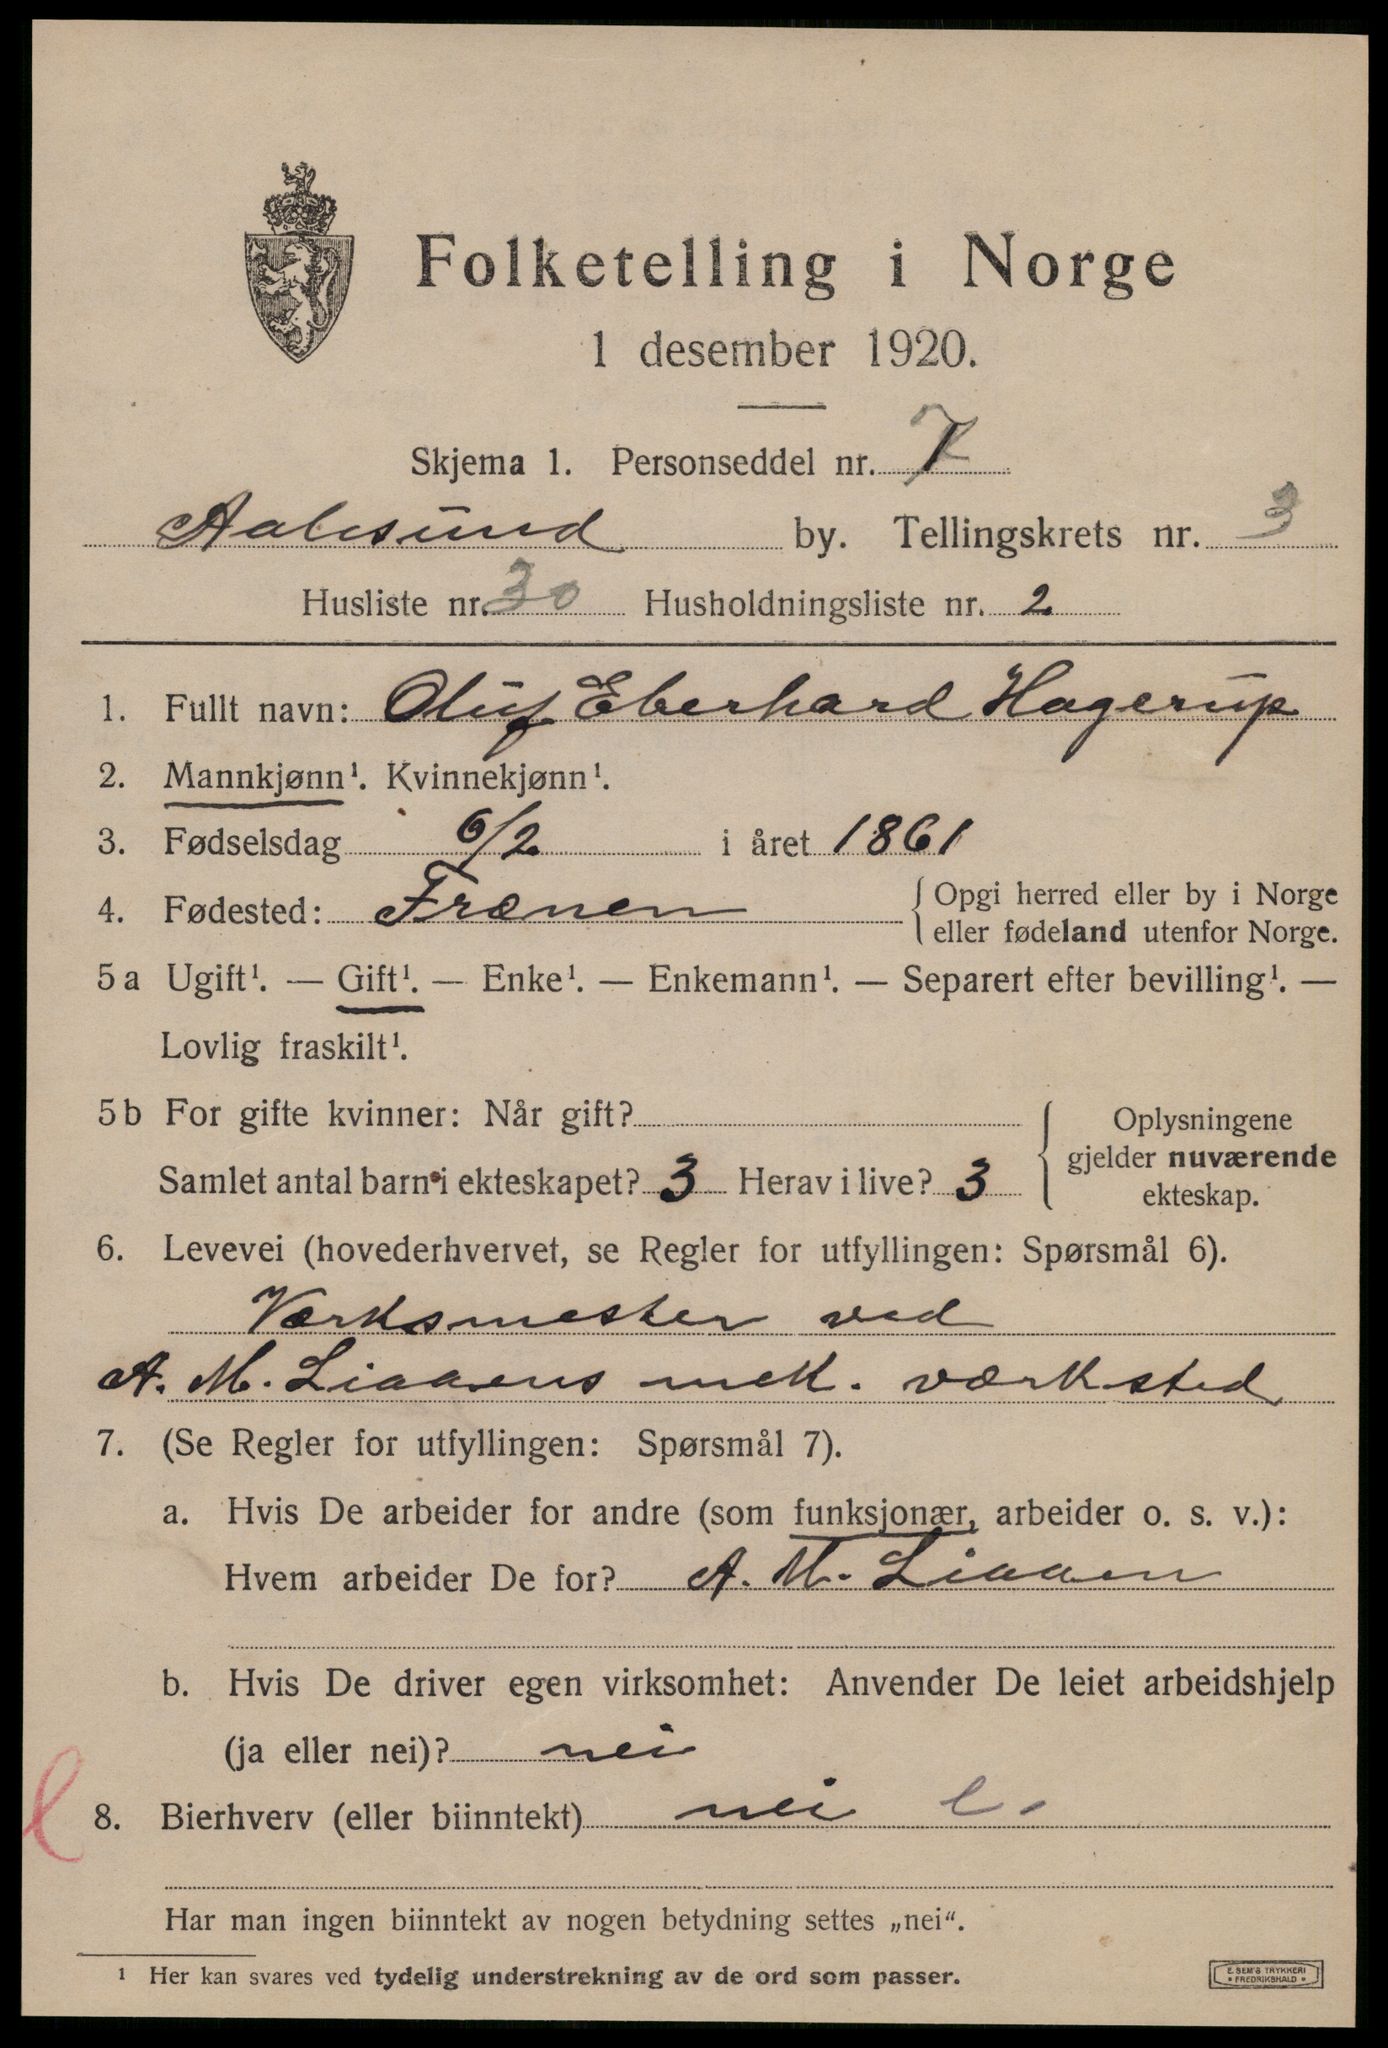 Folketelling i Norge
1 desember 1920.
Skjema 1. Personseddel nr. 7
Aalesund by. Tellingskrets nr. 3
Husliste nr. 30 Husholdningsliste nr. 2
1. Fullt navn: Oluf Eberhard Hagerup
2. Mannkjønn¹. Kvinnekjønn¹.
3. Fødselsdag 6/2 i året 1861
4. Fødested: Frænen { Opgi herred eller by i Norge
eller fødeland utenfor Norge.
5a Ugift¹. — Gift¹. — Enke¹. — Enkemann¹. — Separert efter bevilling¹. —
Lovlig fraskilt¹.
5b For gifte kvinner: Når gift?
Samlet antal barn i ekteskapet? 3 Herav i live? 3
Oplysningene
gjelder nuværende
ekteskap.
6. Levevei (hovederhvervet, se Regler for utfyllingen: Spørsmål 6).
Værksmester ved
A. M. Liaaens mek. værksted
7. (Se Regler for utfyllingen: Spørsmål 7).
a. Hvis De arbeider for andre (som funksjonær, arbeider o. s. v.):
Hvem arbeider De for? A. M. Liaaen
b. Hvis De driver egen virksomhet: Anvender De leiet arbeidshjelp
(ja eller nei)? nei
l 8. Bierhverv (eller biinntekt) nei l.
Har man ingen biinntekt av nogen betydning settes „nei“.
¹ Her kan svares ved tydelig understrekning av de ord som passer.
E. SEM'S TRYKKERI
• FREDRIKSHALD •